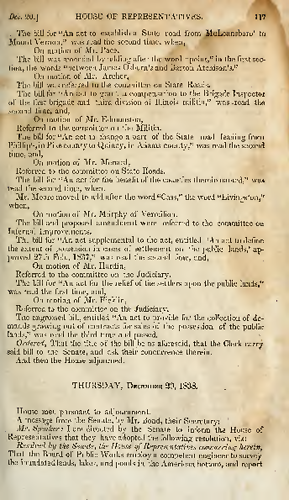 Dec. 20.] HOUSE OF REPRESENTATIVES. 117
The bill for "An act to establish a State road from McLeansboro' to
Mount Vernon," was read the second time, when,
On motion of Mr. Pace,
The bill was amended by adding after the word "point," in the first sec-
tion, the words "between James and Barton Atchison's."
On motion of Mr. Archer,
The bill was referred to the committee on State Roads.
The bill for "An act to grant a compensation to the Brigade Inspector
of the first brigade and third division of Illinois militia," was read the
second time, and,
On motion of Mr. Edmonston,
Referred to the committee on the Militia.
The bill for "An act to change a part of the State road leading from
Phillips, in Pike county to Quincy, in Adams county," was read the second
time, and,
On motion of Mr. Menard,
Referred to the committee on State Roads.
The bill for "An act for the benefit of the counties therein named," was
read the second time, when,
Mr. Moore moved to add after the word "Cass," the word "Livingston,"
when,
On motion of Mr. Murphy of Vermilion,
The bill and proposed amendment were referred to the committee on
Internal Improvements.
The bill for "An act supplemental to the act, entitled "An act to define
the extent of possession in cases of settlement on the public lands," ap-
proved 27th Feb., 1837," was read the second time, and,
On motion of Mr. Hardin,
Referred to the committee on the Judiciary.
The bill for "An act for the relief of the settlers upon the public lands,"
was read the first time, and,
On motion of Mr.
Referred to the committee on the Judiciary.
The engrossed bill, entitled "An act to provide for the collection of de-
mands growing out of contracts for sales of the possession of the public
lands," was read the third time and passed.
Ordered, That the title of the bill be as aforesaid, that the Clerk carry
said bill to the Senate, and ask their concurrence therein.
And then the House adjourned.
THURSDAY, December 20, 1838.
House met pursuant to adjournment.
A message from the Senate, by Mr. Bond, their Secretary:
Mr. Speaker: I am directed by the Senate to inform the House of
Representatives that they have adopted the following resolution, viz:
Resolved by the Senate, the House of Representatives concurring herein,
That the Board of Public Works employ a competent engineer to survey
the inundated lands, lakes, and ponds in the American bottom, and report